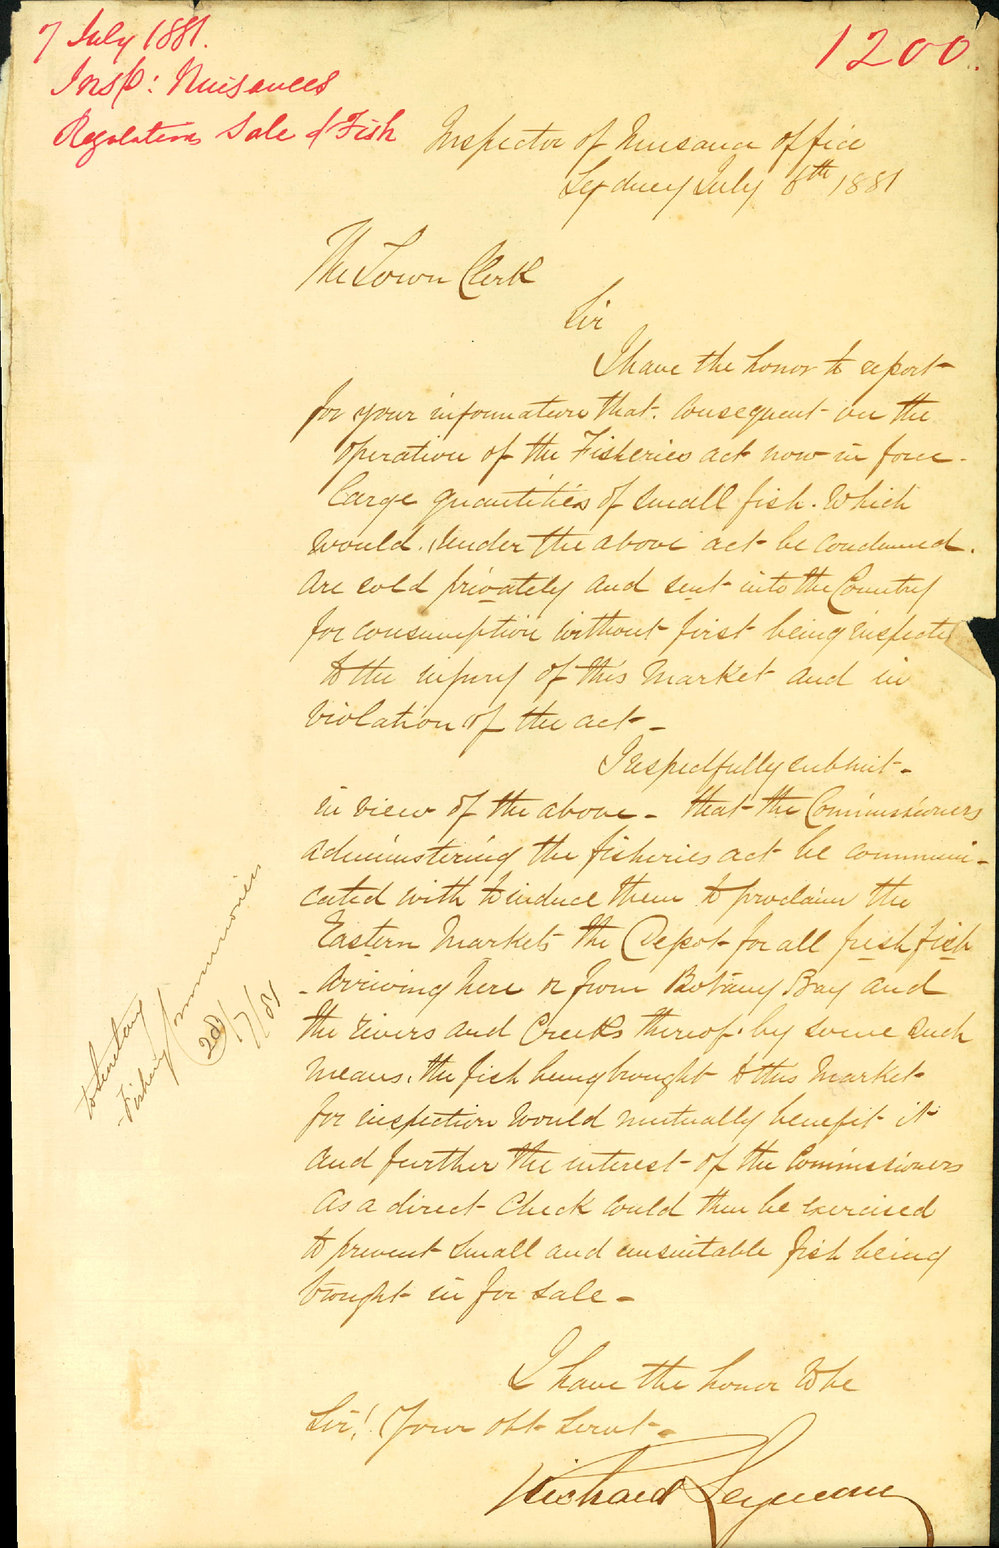 7 July 1881.
Insp: Nuisances
Regulation Sale of Fish
1200.
Inspector of Nuisance office
Sydney July 6th 1881
The Town Clerk
Sir
I have the honor to report
for your information that. Consequent on the
operation of the Fisheries act now in force.
large quantities of small fish. Which
would. Under the above act be condemned.
are sold privately and sent into the Country
for consumption without first being inspected
to the injury of this Market and in
violation of the act -
I respectfully submit -
in view of the above - that the Commissioners
administering the fisheries act be communi-
cated with to induce them to proclaim the
Eastern Markets the Depot for all fresh fish
arriving here or from Botany Bay and
the rivers and Creeks thereof. by some such
means. the fish being brought to this Market
for inspection would mutually benefit it
and further the interest of the Commissioners
as a direct Check could then be exercised
to prevent small and unsuitable fish being
brought in for sale -
I have the honor to be
Sir! Your obt Servt.
Richard Seymour
Fishing Commissioners
20/7/81